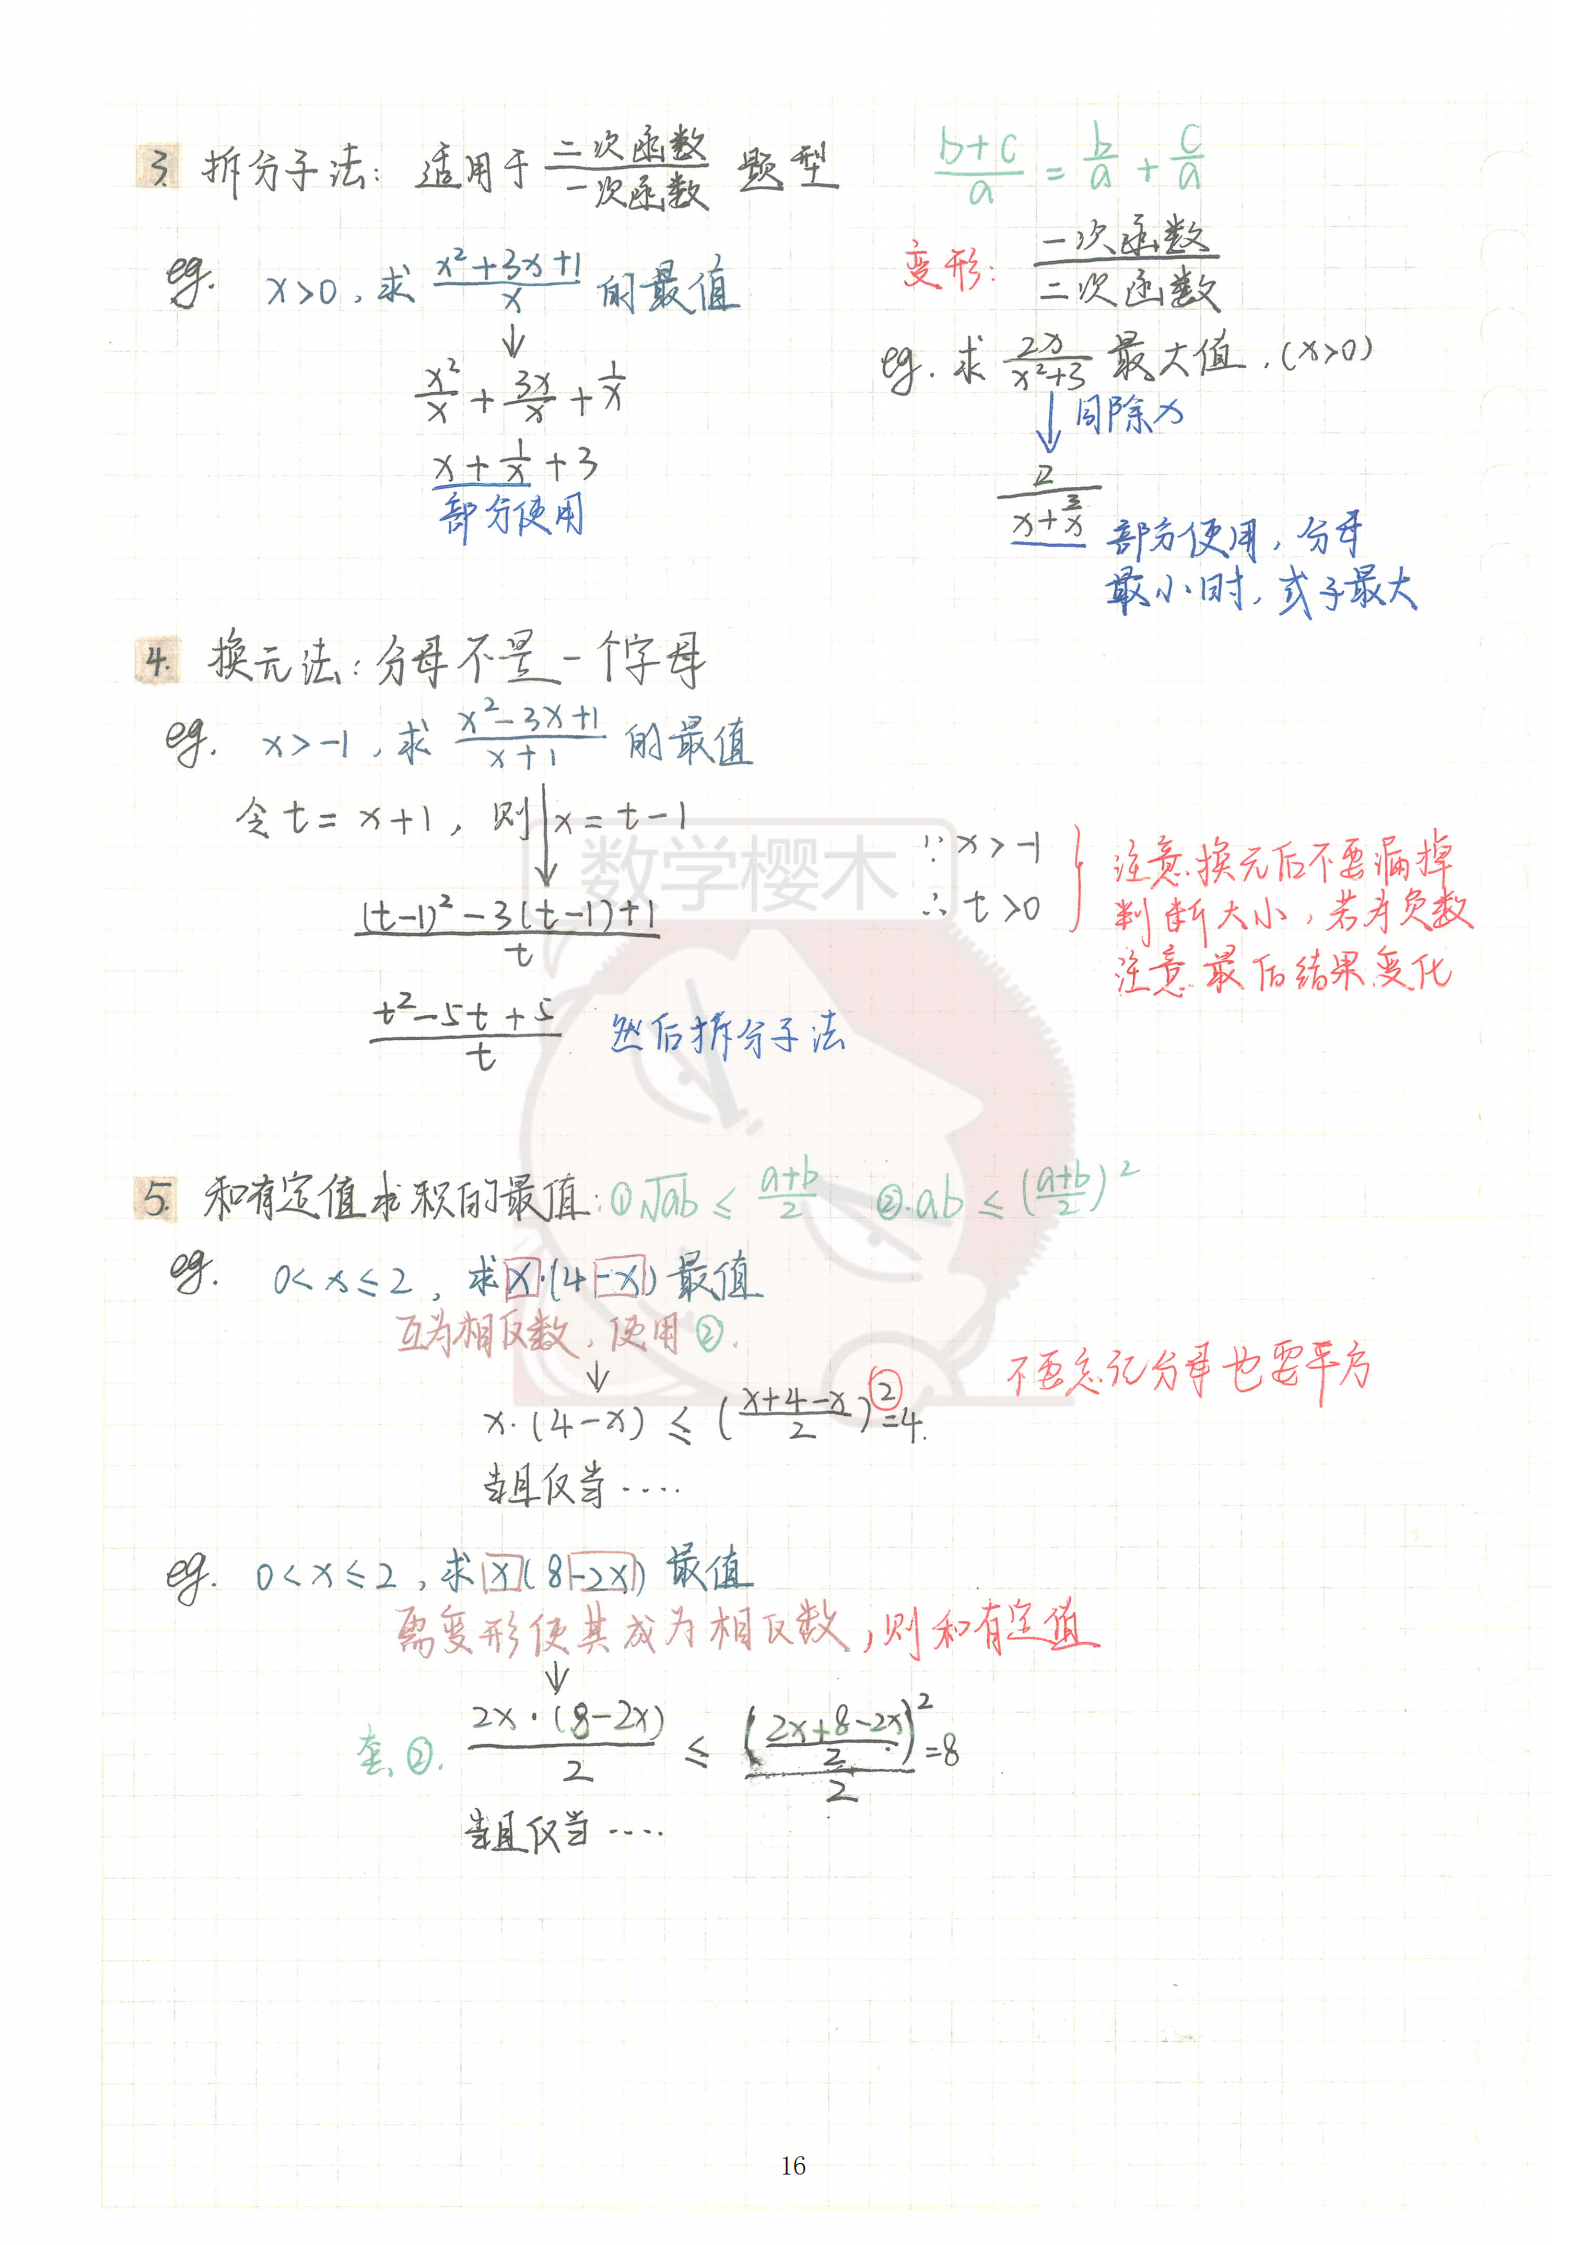 3. 拆分子法: 适用于 二次函数/一次函数 题型
(b+c)/a = b/a + c/a
eg. x>0, 求 (x²+3x+1)/x 的最值
↓
x²/x + 3x/x + 1/x
x + 1/x + 3
部分使用
变形: 一次函数/二次函数
eg. 求 2x/(x²+3) 最大值. (x>0)
↓ 同除x
2/(x+3/x)
部分使用, 分母
最小时, 式子最大
4. 换元法: 分母不是一个字母
eg. x>-1, 求 (x²-3x+1)/(x+1) 的最值
令 t = x+1, 则 x = t-1
↓
((t-1)²-3(t-1)+1)/t
(t²-5t+5)/t 然后拆分子法
∵ x>-1
∴ t>0
注意换元后不要漏掉
判断大小, 若为负数
注意最后结果变化
数学樱木
5. 和有定值求积的最值: ①√ab ≤ (a+b)/2 ②.ab ≤ ((a+b)/2)²
eg. 0<x≤2, 求x·(4-x) 最值
互为相反数, 使用②.
↓
x·(4-x) ≤ ((x+4-x)/2)² =4.
不要忘记分母也要平方
当且仅当····
eg. 0<x≤2, 求x(8-2x) 最值
需变形使其成为相反数, 则和有定值
↓
套②. 2x·(8-2x)/2 ≤ ((2x+8-2x)/2)²/2 =8
当且仅当····
16